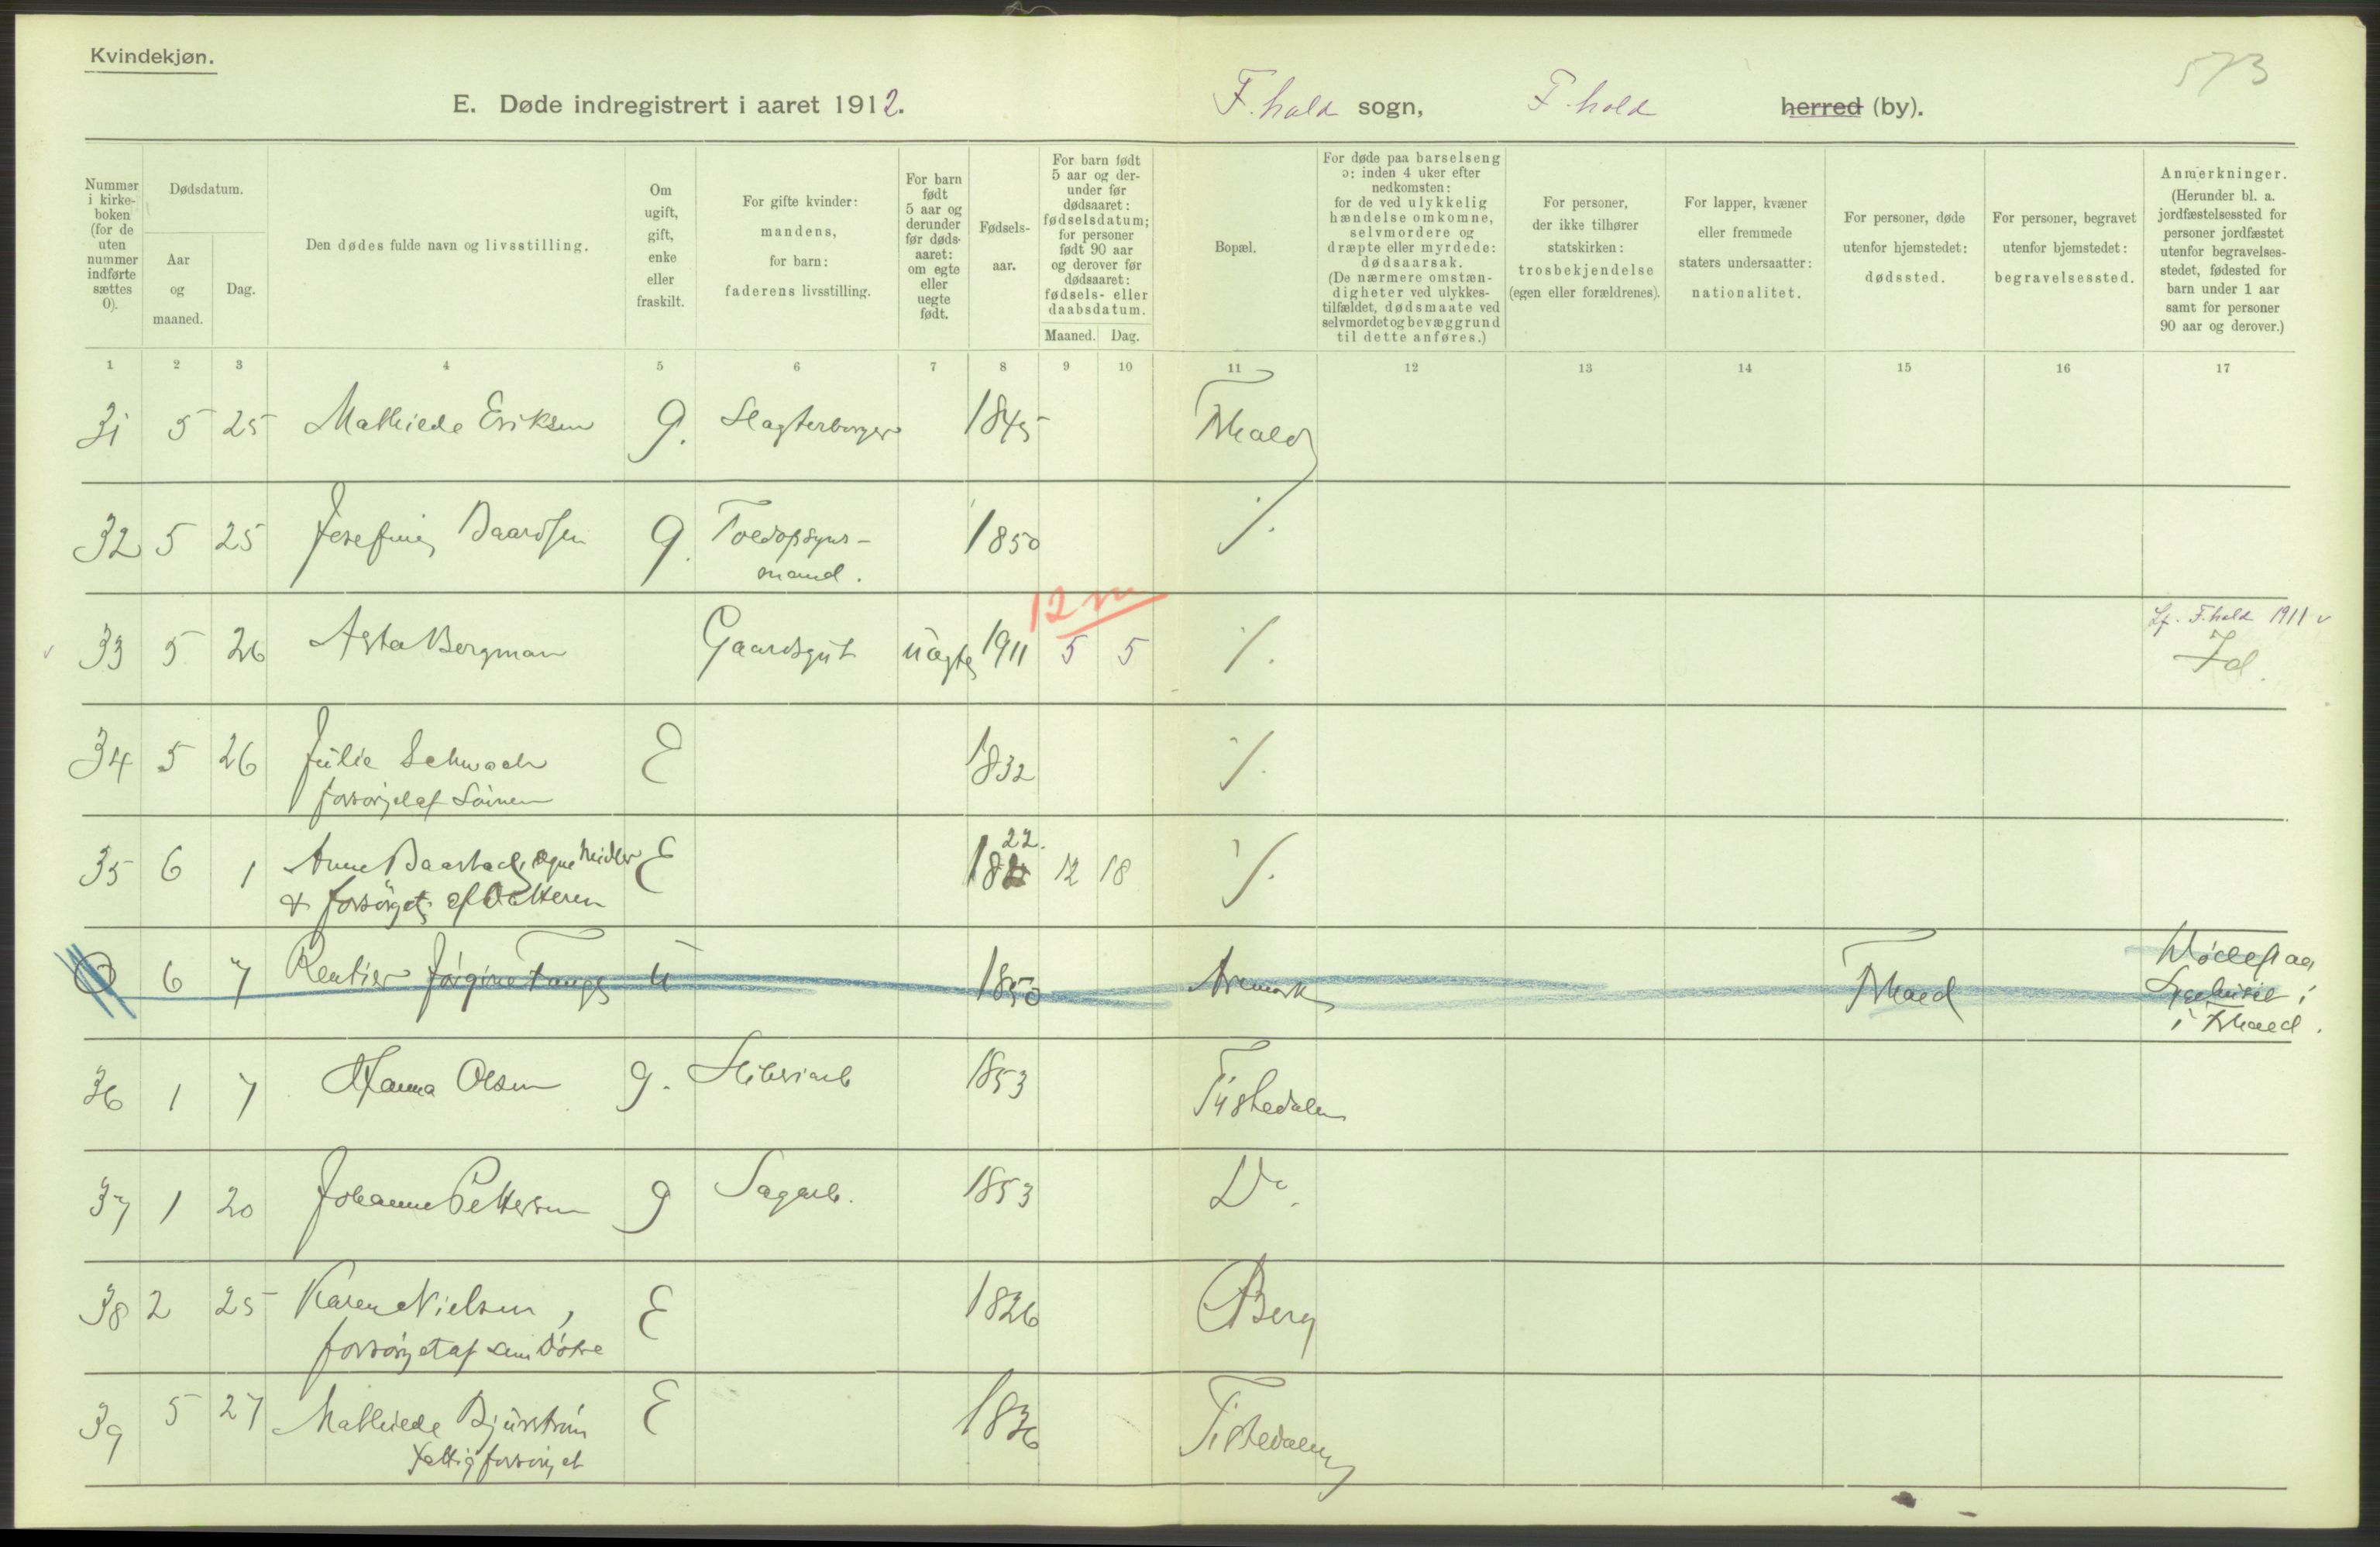 Kvindekjøn.
573
E. Døde indregistrert i aaret 1912.
F.hald sogn, F.hald herred (by).
Nummer i kirke-boken (for de uten nummer indførte sættes 0).
Dødsdatum.
Aar og maaned.
Dag.
Den dødes fulde navn og livsstilling.
Om ugift, gift, enke eller fraskilt.
For gifte kvinder: mandens, for barn: faderens livsstilling.
For barn født 5 aar og derunder før døds-aaret: om egte eller uegte født.
Fødsels-aar.
For barn født 5 aar og der-under før dødsaaret: fødselsdatum; for personer født 90 aar og derover før dødsaaret: fødsels- eller daabsdatum.
Maaned. Dag.
Bopæl.
For døde paa barselseng ɔ: inden 4 uker efter nedkomsten: for de ved ulykkelig hændelse omkomne, selvmordere og dræpte eller myrdede: dødsaarsak. (De nærmere omstæn-digheter ved ulykkes-tilfældet, dødsmaate ved selvmordet og bevæggrund til dette anføres.)
For personer, der ikke tilhører statskirken: trosbekjendelse (egen eller forældrenes).
For lapper, kvæner eller fremmede staters undersaatter: nationalitet.
For personer, døde utenfor hjemstedet: dødssted.
For personer, begravet utenfor hjemstedet: begravelsessted.
Anmerkninger. (Herunder bl. a. jordfæstelsessted for personer jordfæstet utenfor begravelses-stedet, fødested for barn under 1 aar samt for personer 90 aar og derover.)
1 2 3 4 5 6 7 8 9 10 11 12 13 14 15 16 17
31 5 25 Mathilde Eriksen g. Slagterborger 1845 Fhald
32 5 25 Josefine Baardsen g. Toldopsyns-
mand. 1850 ⁒
12 m
33 5 26 Asta Bergman Gaardsgut uægte 1911 5 5 ⁒ F.hald 1911 v
Id.
34 5 26 Julie Schwach E 1832 ⁒
forsørget af Sönnen
35 6 1 Anne Baastad, egne Midler E 1822. 12 18 ⁒
+ forsörget af Datteren
0 6 7 Rentier Jørgine Tangs u 1850 Aremark Fhald Døde paa
Sygehuset i
i Fhald.
36 1 7 Hanna Olsen g. Sliberiarb 1853 Tistedalen
37 1 20 Johanne Pettersen g Sagarb. 1853 Do.
38 2 25 Karen Nielsen, E 1826 Berg
forsörget af sin Dötre
39 5 27 Mathilde Bjurström E 1836 Tistedalen
Fattigforsörget